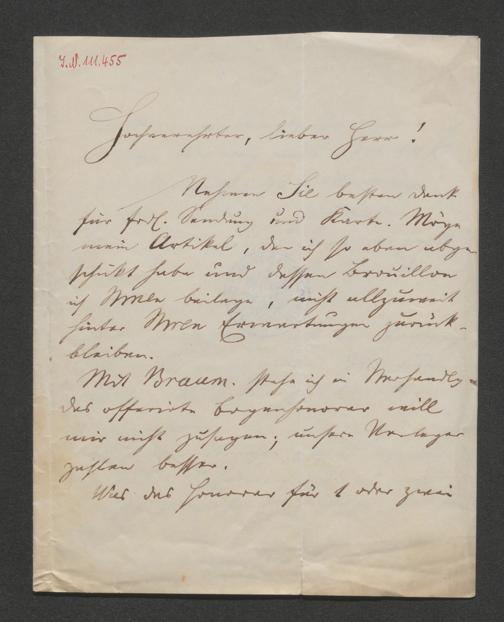 J.N. 111.455
Hochverehrter, lieber Herr!
Nehmen Sie besten Dank
für frdl. Sendung und Karte. Möge
mein Artikel, den ich so eben abge-
schickt habe und dessen Brouillon
ich Ihnen beilege, nicht allzuweit
hinter Ihren Erwartungen zurück-
bleiben.
Mit Braum. stehe ich in Verhandlg.
das offerirte Bogenhonorar will
mir nicht zusagen; unsere Verleger
zahlen besser.
Was das Honorar für 1 oder zwei